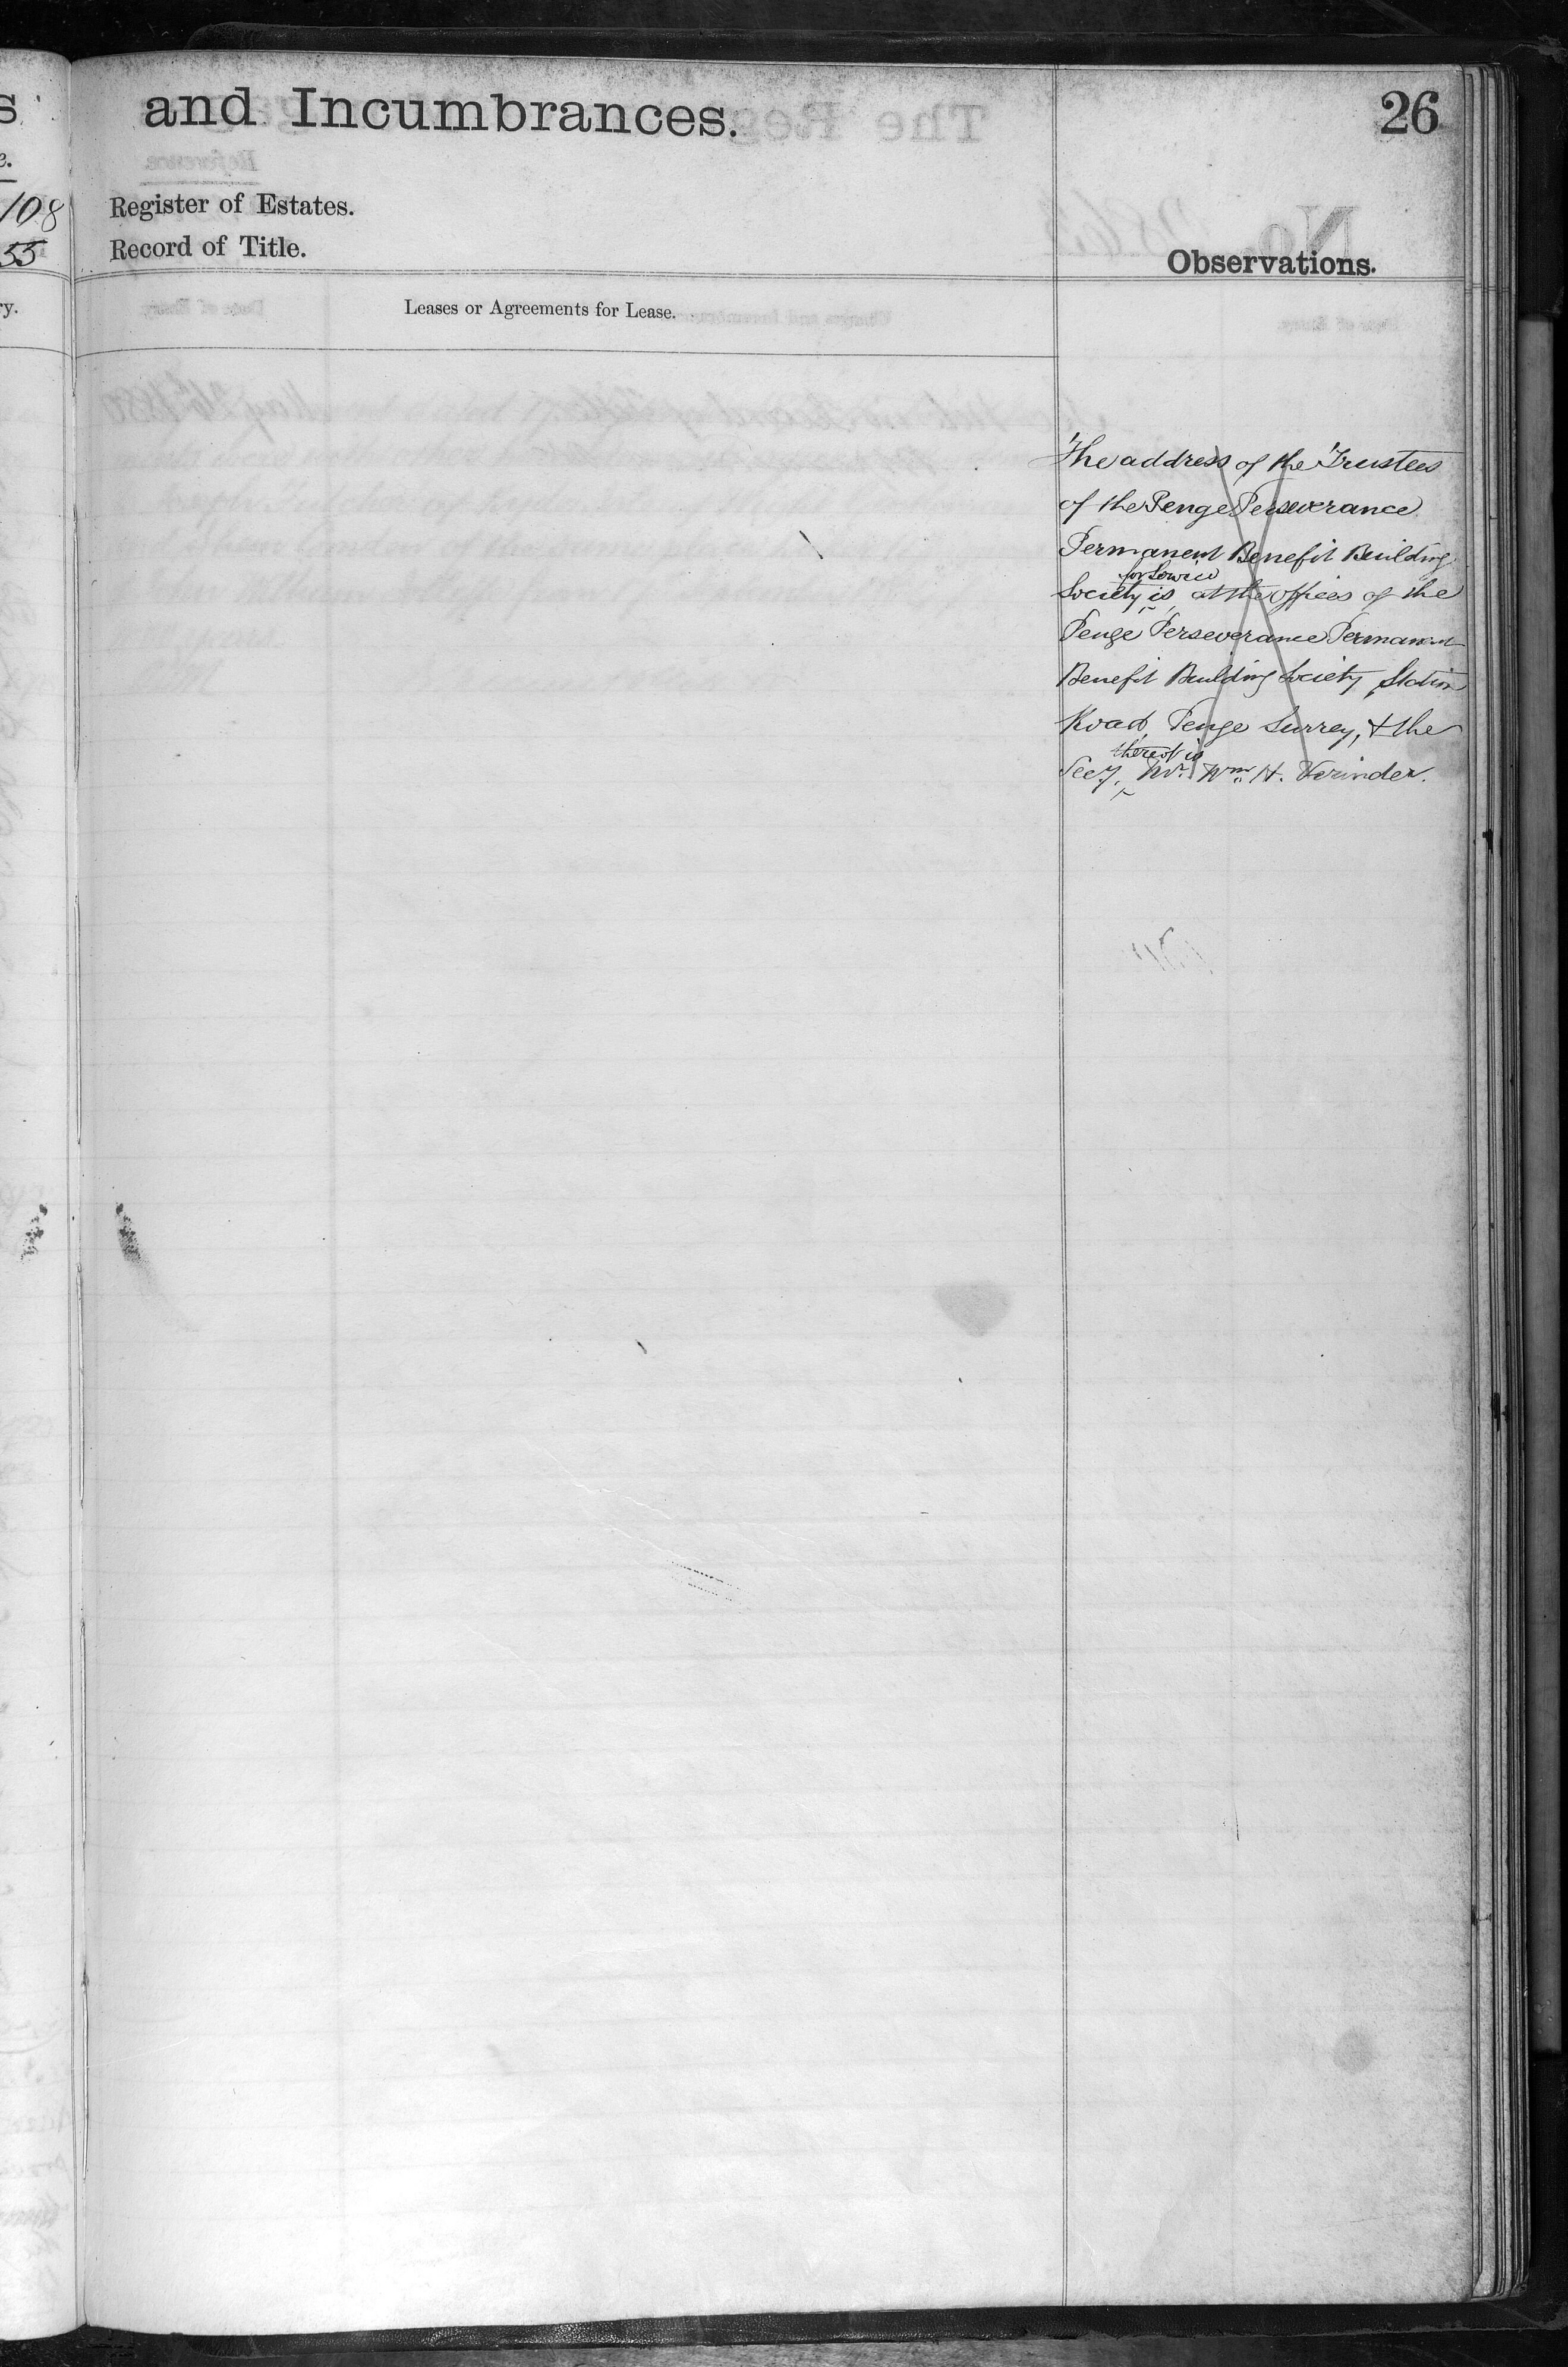 and Incumbrances.
26
108
Register of Estates.
55
Record of Title.
Observations.
Leases or Agreements for Lease.
The address of the Trustees
of the Penge Perseverance
Permanent Benefit Building
for service
Society is at the offices of the
Penge Perseverance Permanent
Benefit Building Society, Station
Road, Penge Surrey, & the
thereof is
Secy. Mr. Wm. H. Verinder.